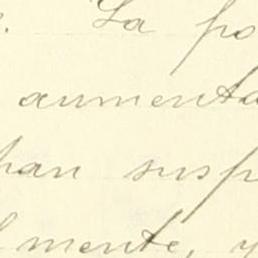 . La po
aumenta
han susp
lmente, y